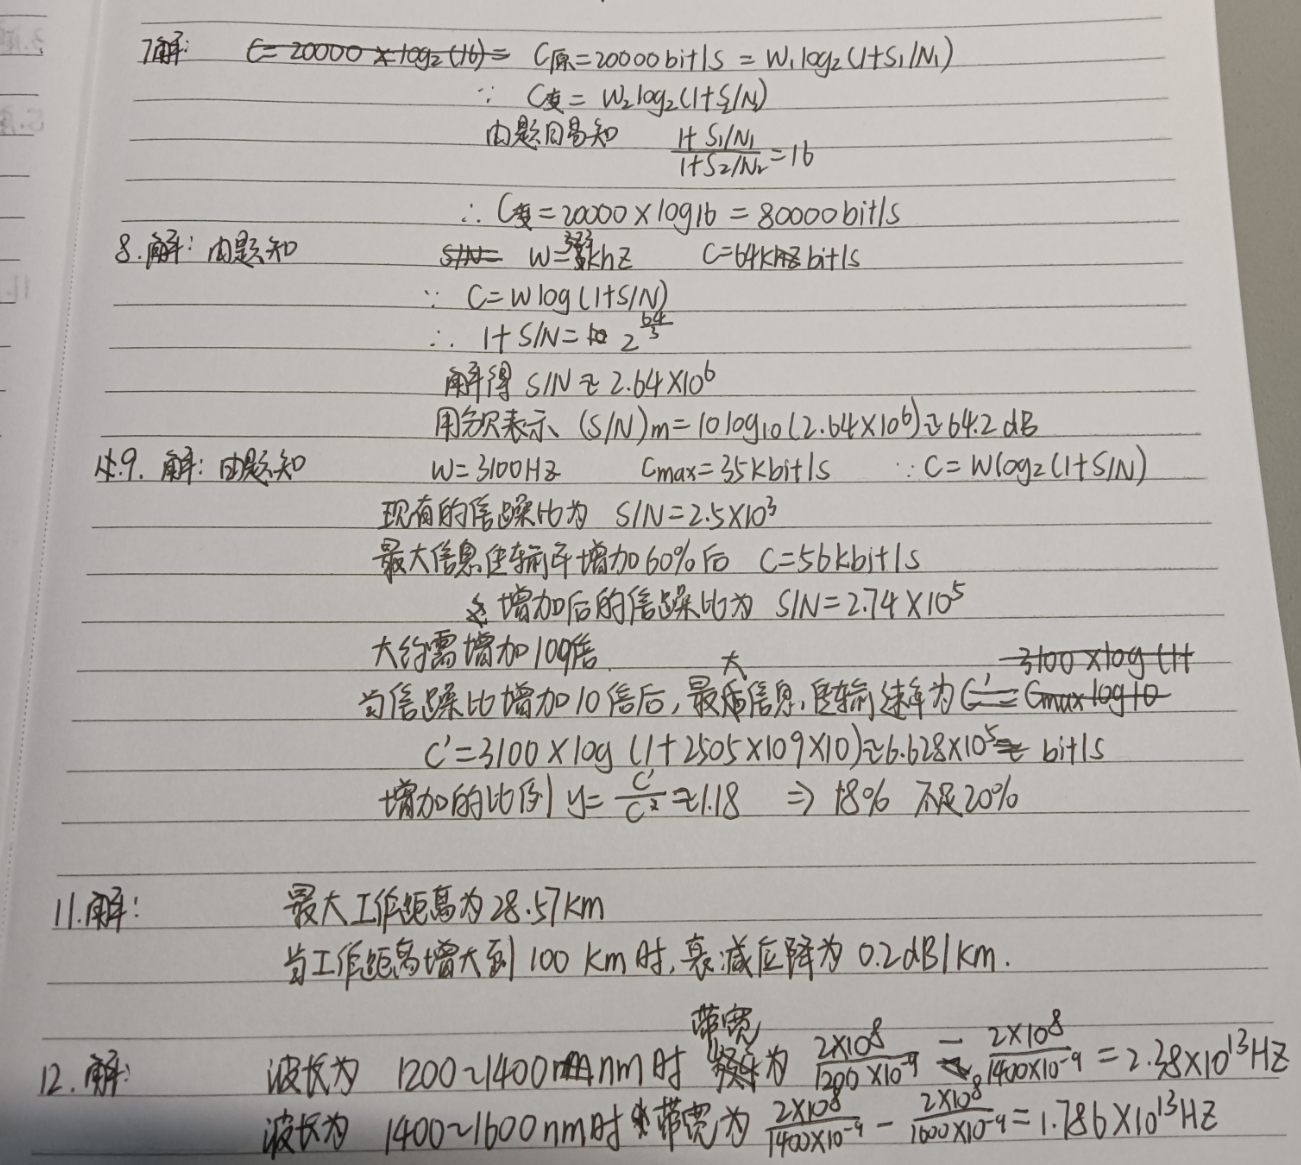 7解: C=20000×log2(16)= C原=20000bit/s = W1log2(1+S1/N1)
∵ C变 = W2log2(1+S2/N2)
由题目易知 1+S1/N1 / 1+S2/N2 =16
∴ C变=20000×log16 = 80000bit/s
8.解: 由题知 S/N= W=3khz C=64kbit/s
∵ C=Wlog(1+S/N)
∴ 1+S/N= 2^64/3
解得 S/N≈2.64×10^6
用分贝表示 (S/N)m=10log10(2.64×10^6)≈64.2dB
9. 解: 由题知 W=3100HZ Cmax=35kbit/s ∵C=Wlog2(1+S/N)
现有的信躁比为 S/N=2.5×10^3
最大信息传输率增加60%后 C=56kbit/s
增加后的信躁比为 S/N=2.74×10^5
大约需增加109倍.
3100×log(1+
当信躁比增加10倍后,最大信息传输速率为C'=Cmaxlog10
C'=3100×log(1+2505×109×10)≈6.628×10^5 bit/s
增加的比例 y= C'/C ≈1.18 ⇒ 18% 不足20%
11.解: 最大工作距离为28.57km
当工作距离增大到100km时,衰减应降为0.2dB/km.
12.解: 波长为 1200~1400nm时 带宽为 2×10^8/1200×10^-9 - 2×10^8/1400×10^-9 =2.38×10^13HZ
波长为 1400~1600nm时 带宽为 2×10^8/1400×10^-9 - 2×10^8/1600×10^-9 =1.786×10^13HZ